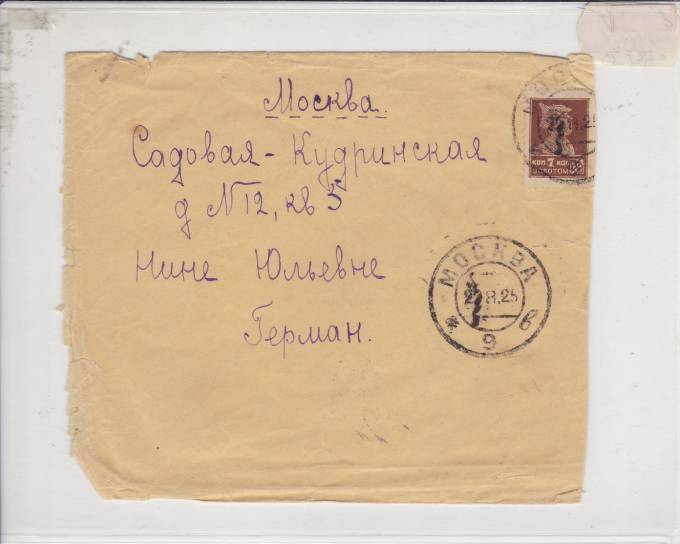 Москва.
Садовая-Кудринская
д N12, кв 5
Нине Юльевне
Герман.
КОП 7 КОП
ЗОЛОТОМ
МОСКВА
8.25
9 б